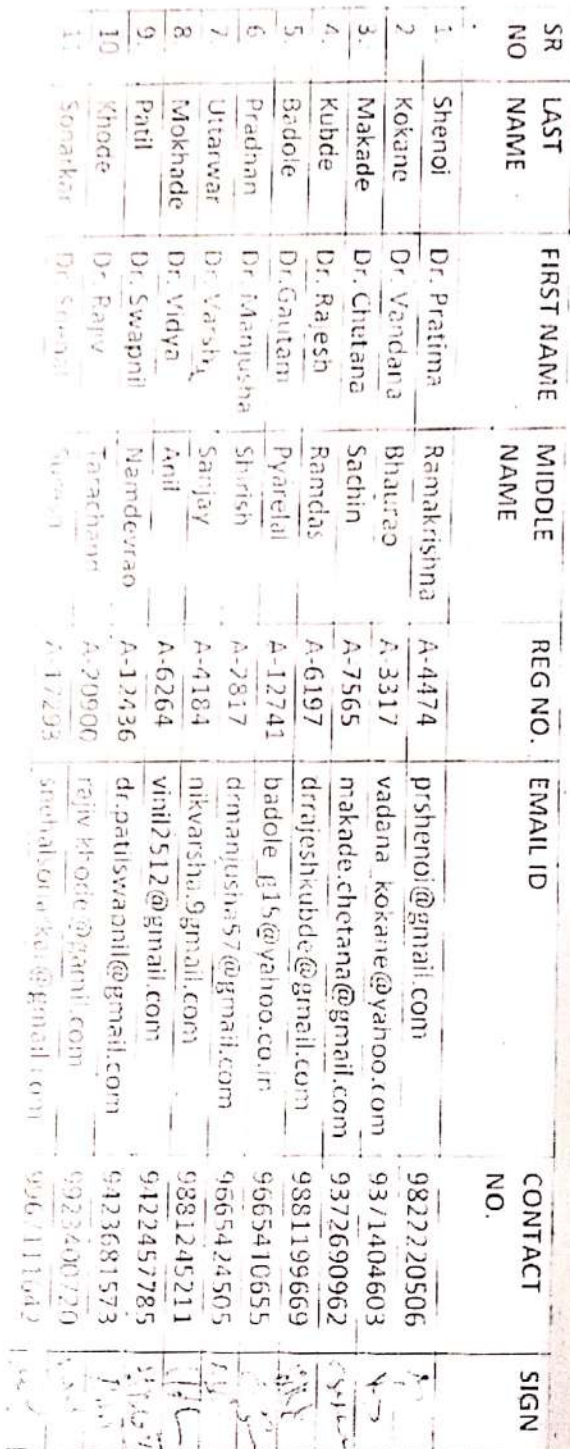 SR NO LAST NAME FIRST NAME MIDDLE NAME REG NO. EMAIL ID CONTACT NO. SIGN
1. Shenoi Dr. Pratima Ramakrishna A-4474 prshenoi@gmail.com 9822220506
2 Kokane Dr. Vandana Bhaurao A-3317 vadana_kokane@yahoo.com 9371404603
3. Makade Dr. Chetana Sachin A-7565 makade.chetana@gmail.com 9372690962
4. Kubde Dr. Rajesh Ramdas A-6197 drrajeshkubde@gmail.com 9881199669
5. Badole Dr.Gautam Pyarelal A-12741 badole_g15@yahoo.co.in 9665410655
6 Pradhan Dr. Manjusha Shirish A-2817 drmanjusha57@gmail.com 9665424505
7. Uttarwar Dr. Varsha Sanjay A-4184 nikvarsha.9gmail.com 9881245211
8. Mokhade Dr. Vidya Anil A-6264 vinil2512@gmail.com 9422457785
9. Patil Dr. Swapnil Namdevrao A-12436 dr.patilswapnil@gmail.com 9423681573
10 Khode Dr. Rajiv Tarachand A-20900 rajiv.khode@gamil.com 9923400720
11 Sonarkar Dr. Snehal A-17293 snehalsonarkar@gmail.com